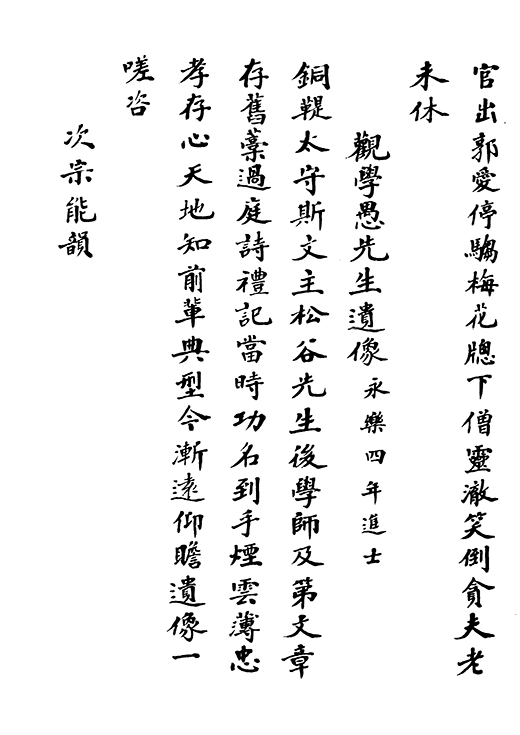 官出郭愛停驂梅花牕下僧靈澈笑倒貪夫老
未休
觀學愚先生遺像永樂四年進士
銅鞮太守斯文主松谷先生後學師及第文章
存舊藁過庭詩禮記當時功名到手煙雲薄忠
孝存心天地知前輩典型今漸遠仰瞻遺像一
嗟咨
次宗能韻